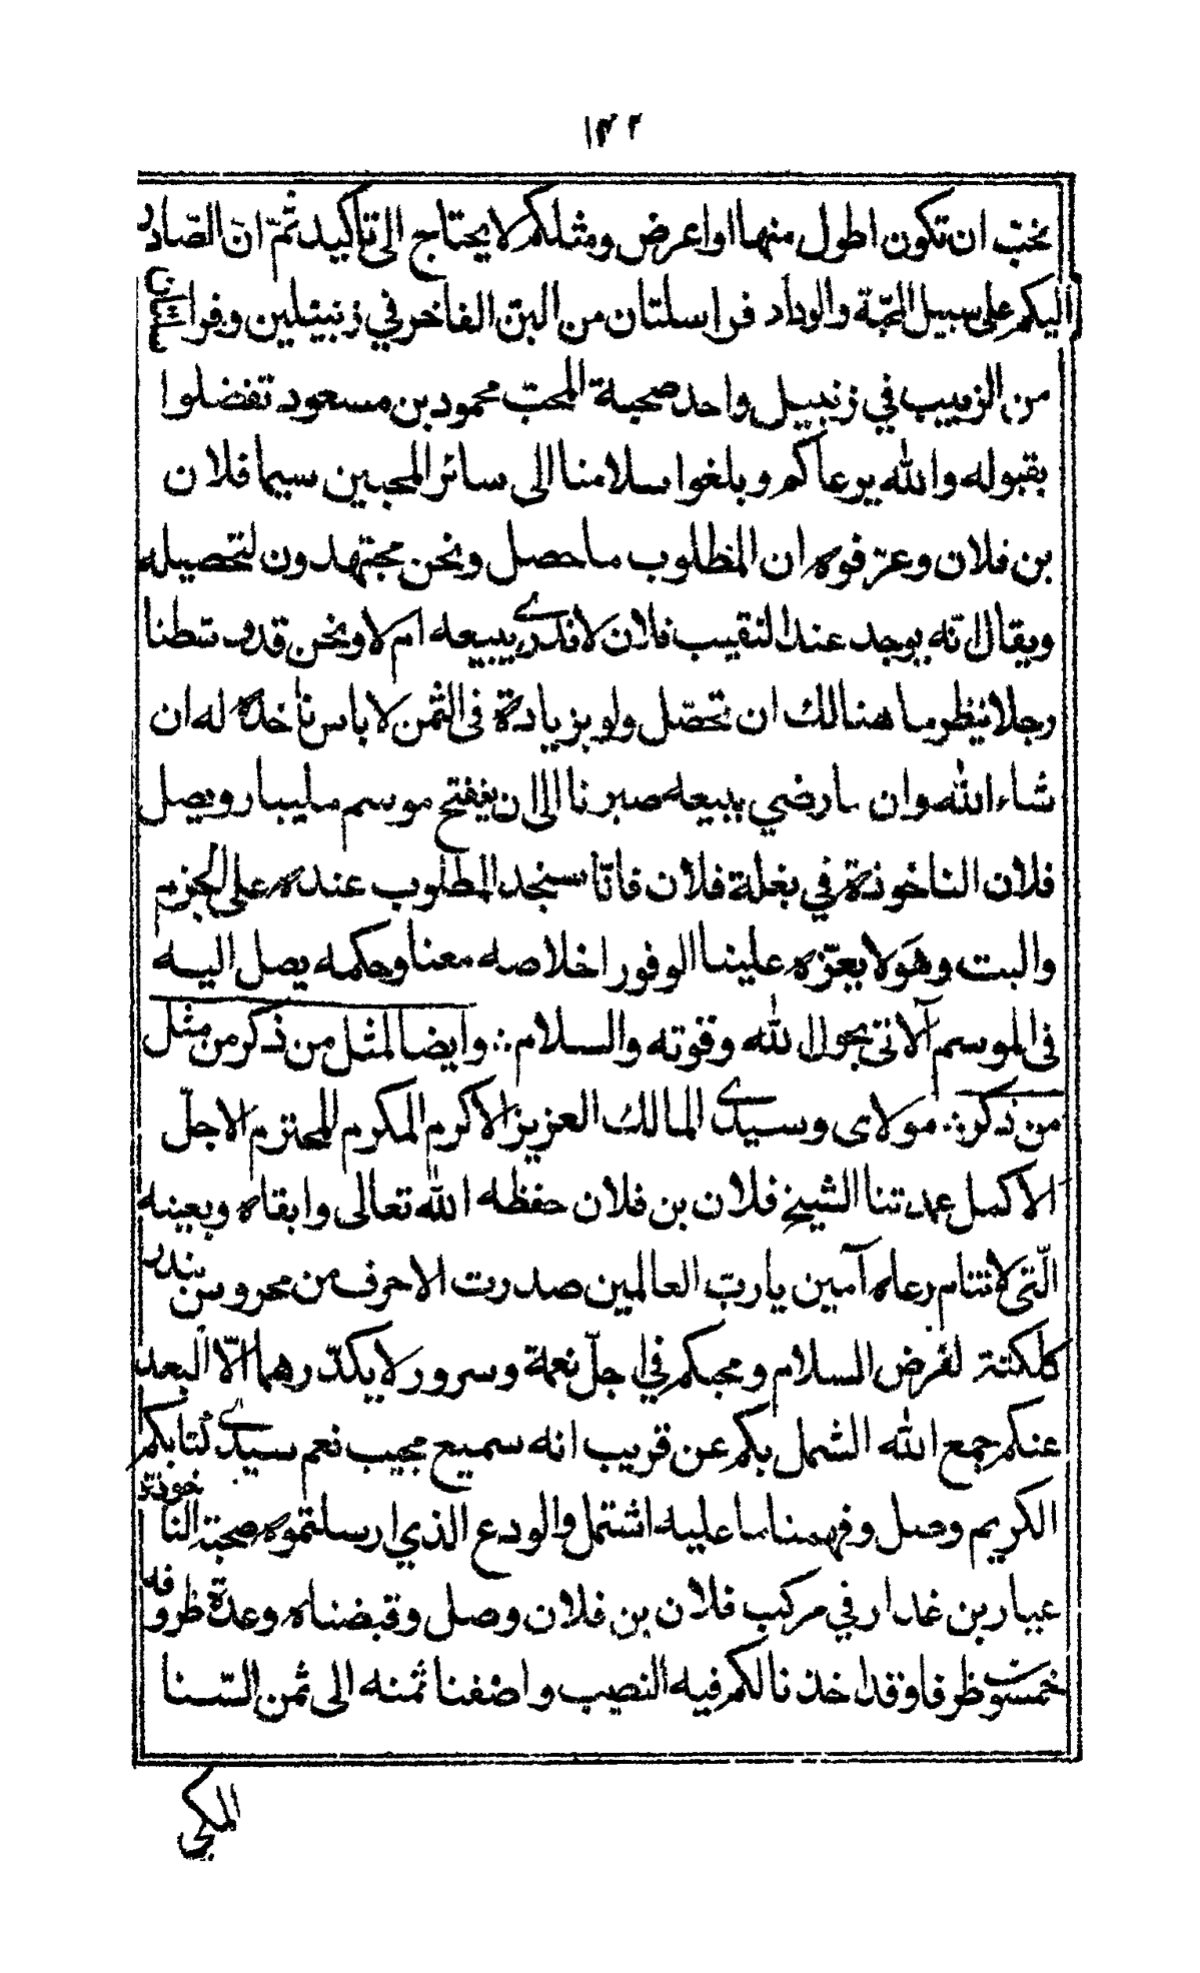 ١٤٢
نحبّ ان تكون اطول منها او اعرض ومثلكم لا يحتاج الى تاكيد ثمّ انّ الصّادر
اليكم على سبيل المحبّة والوداد فراسلتان من البنّ الفاخر في زنبيلين وفراسلتان
من الزبيب في زنبيل واحد صحبة المحبّ محمود بن مسعود تفضلوا
بقبوله والله يرعاكم وبلغوا سلامنا الى سائر المحبين سيما فلان
بن فلان وعرّفوه ان المطلوب ما حصل ونحن مجتهدون لتحصيله
ويقال انّه يوجد عند النقيب فلان لا ندري يبيعه ام لا ونحن قد وسّطنا
رجلا ينظر ما هنالك ان تحصّل ولو بزيادة فى الثمن لا باس ناخذه له ان
شاء الله وان ما رضي ببيعه صبرنا الى ان يفتح موسم مليبار ويصل
فلان الناخوذة في بغلة فلان فانّا سنجد المطلوب عنده على الجزم
والبت وهو لا يعزّه علينا الوفور اخلاصه معنا وحكمه يصل اليه
فى الموسم الآتي بحول الله وقوته والسلام ؞ وايضا لمثل من ذكر من مثل
من ذكر ؞ مولاى وسيدي المالك العزيز الاكرم المكرم المحترم الاجلّ
الاكمل عمدتنا الشيخ فلان بن فلان حفظه الله تعالى وابقاه وبعينه
الّتى لا تنام رعاه آمين يا ربّ العالمين صدرت الاحرف من محروس بندر
كلكتة لفرض السلام ومحبكم في اجلّ نعمة وسرور لا يكدّرهما الّا البعد
عنكم جمع الله الشمل بكم عن قريب انه سميع مجيب نعم سيدي كتابكم
الكريم وصل وفهمنا ما عليه اشتمل والودع الذي ارسلتموه صحبة الناخوذة
عيار بن غدار في مركب فلان بن فلان وصل وقبضناه وعدة ظروفه
خمسون ظرفا وقد اخذنا لكم فيه النصيب واضفنا ثمنه الى ثمن السّنا
المكي